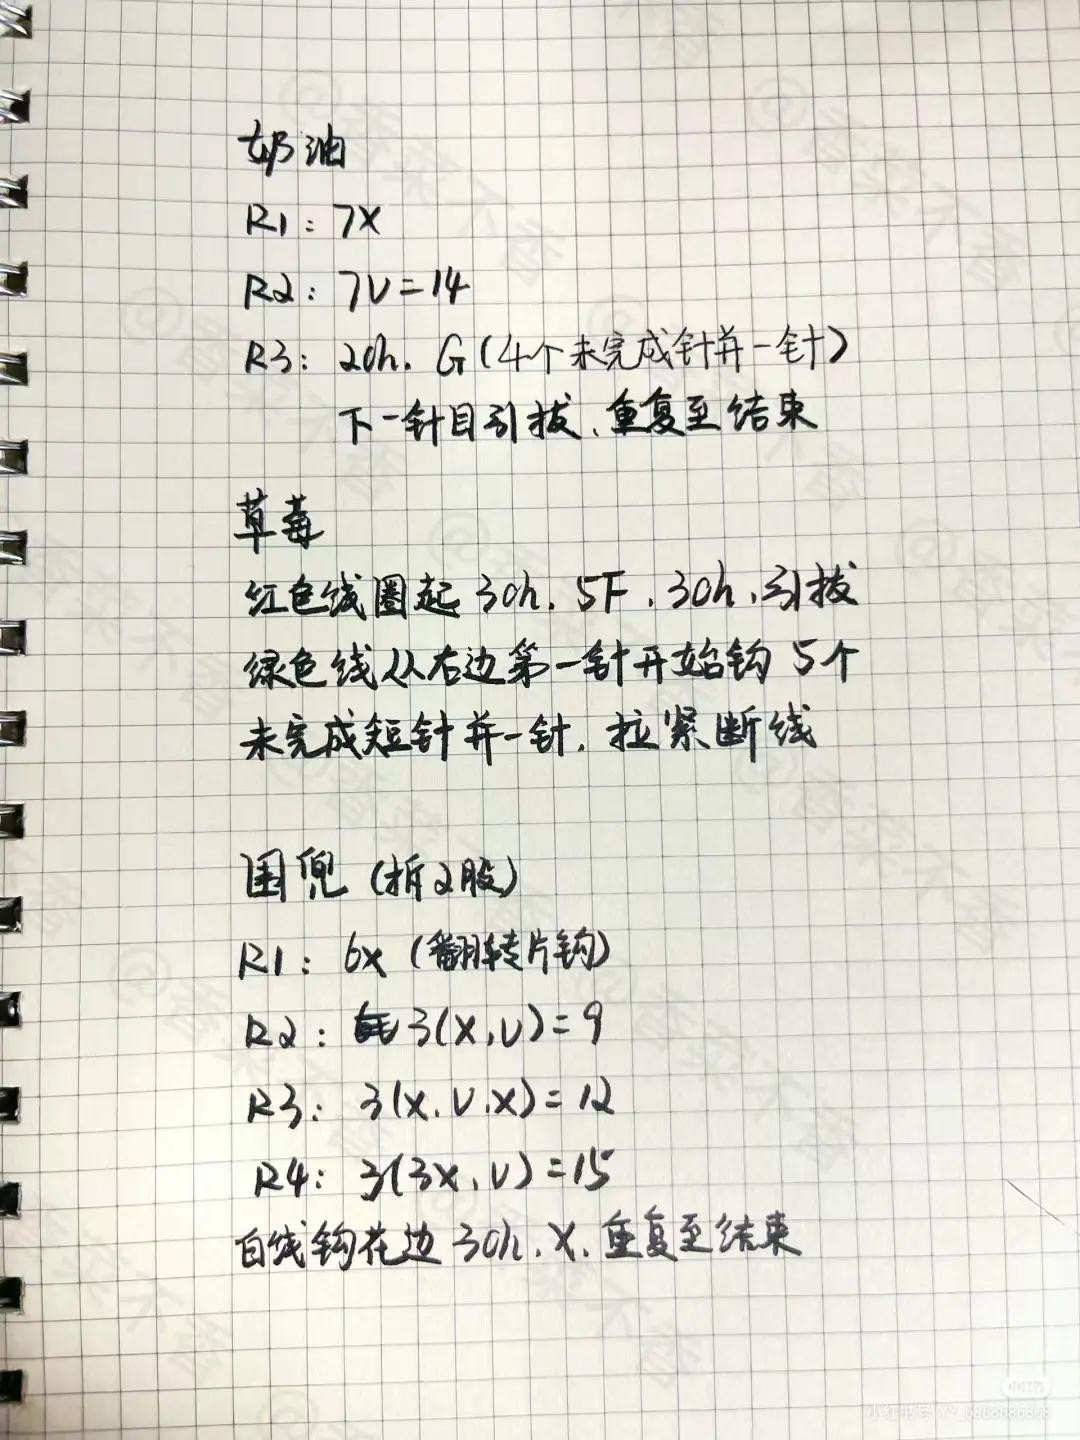 奶油
R1: 7X
R2: 7V=14
R3: 2ch. G(4个未完成针并一针)
下一针目引拔、重复至结束
草莓
红色线圈起 3ch. 5F. 3ch. 引拔
绿色线从右边第一针开始钩 5个
未完成短针并一针. 拉紧断线
围兜 (拆2股)
R1: 6x (翻转片钩)
R2: 3(x,V)=9
R3: 3(x.V.x)=12
R4: 3(3x,V)=15
白线钩花边 3ch. X. 重复至结束
@香菜不香
小红书